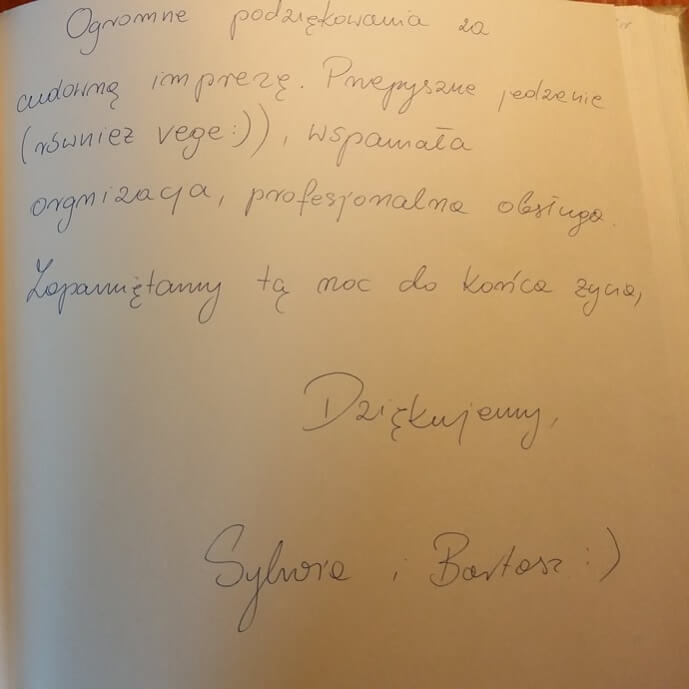 Ogromne podziękowania za
cudowną imprezę. Przepyszne jedzenie
(również vege:)), wspaniała
orgnizacja, profesjonalna obsługa.
Zapamiętamy tą noc do końca życia,
Dziękujemy,
Sylwia i Bartosz :)